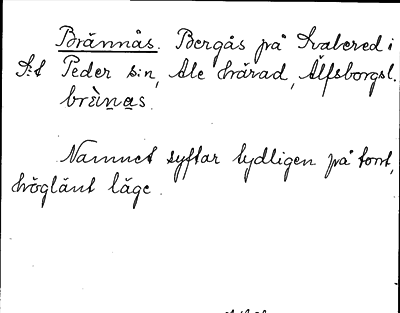 Brännås. Bergås på Kvalered i
S:t Peder s:n, Ale härad, Älfsborgsl.
brènas.
Namnet syftar tydligen på tomt,
höglänt läge.